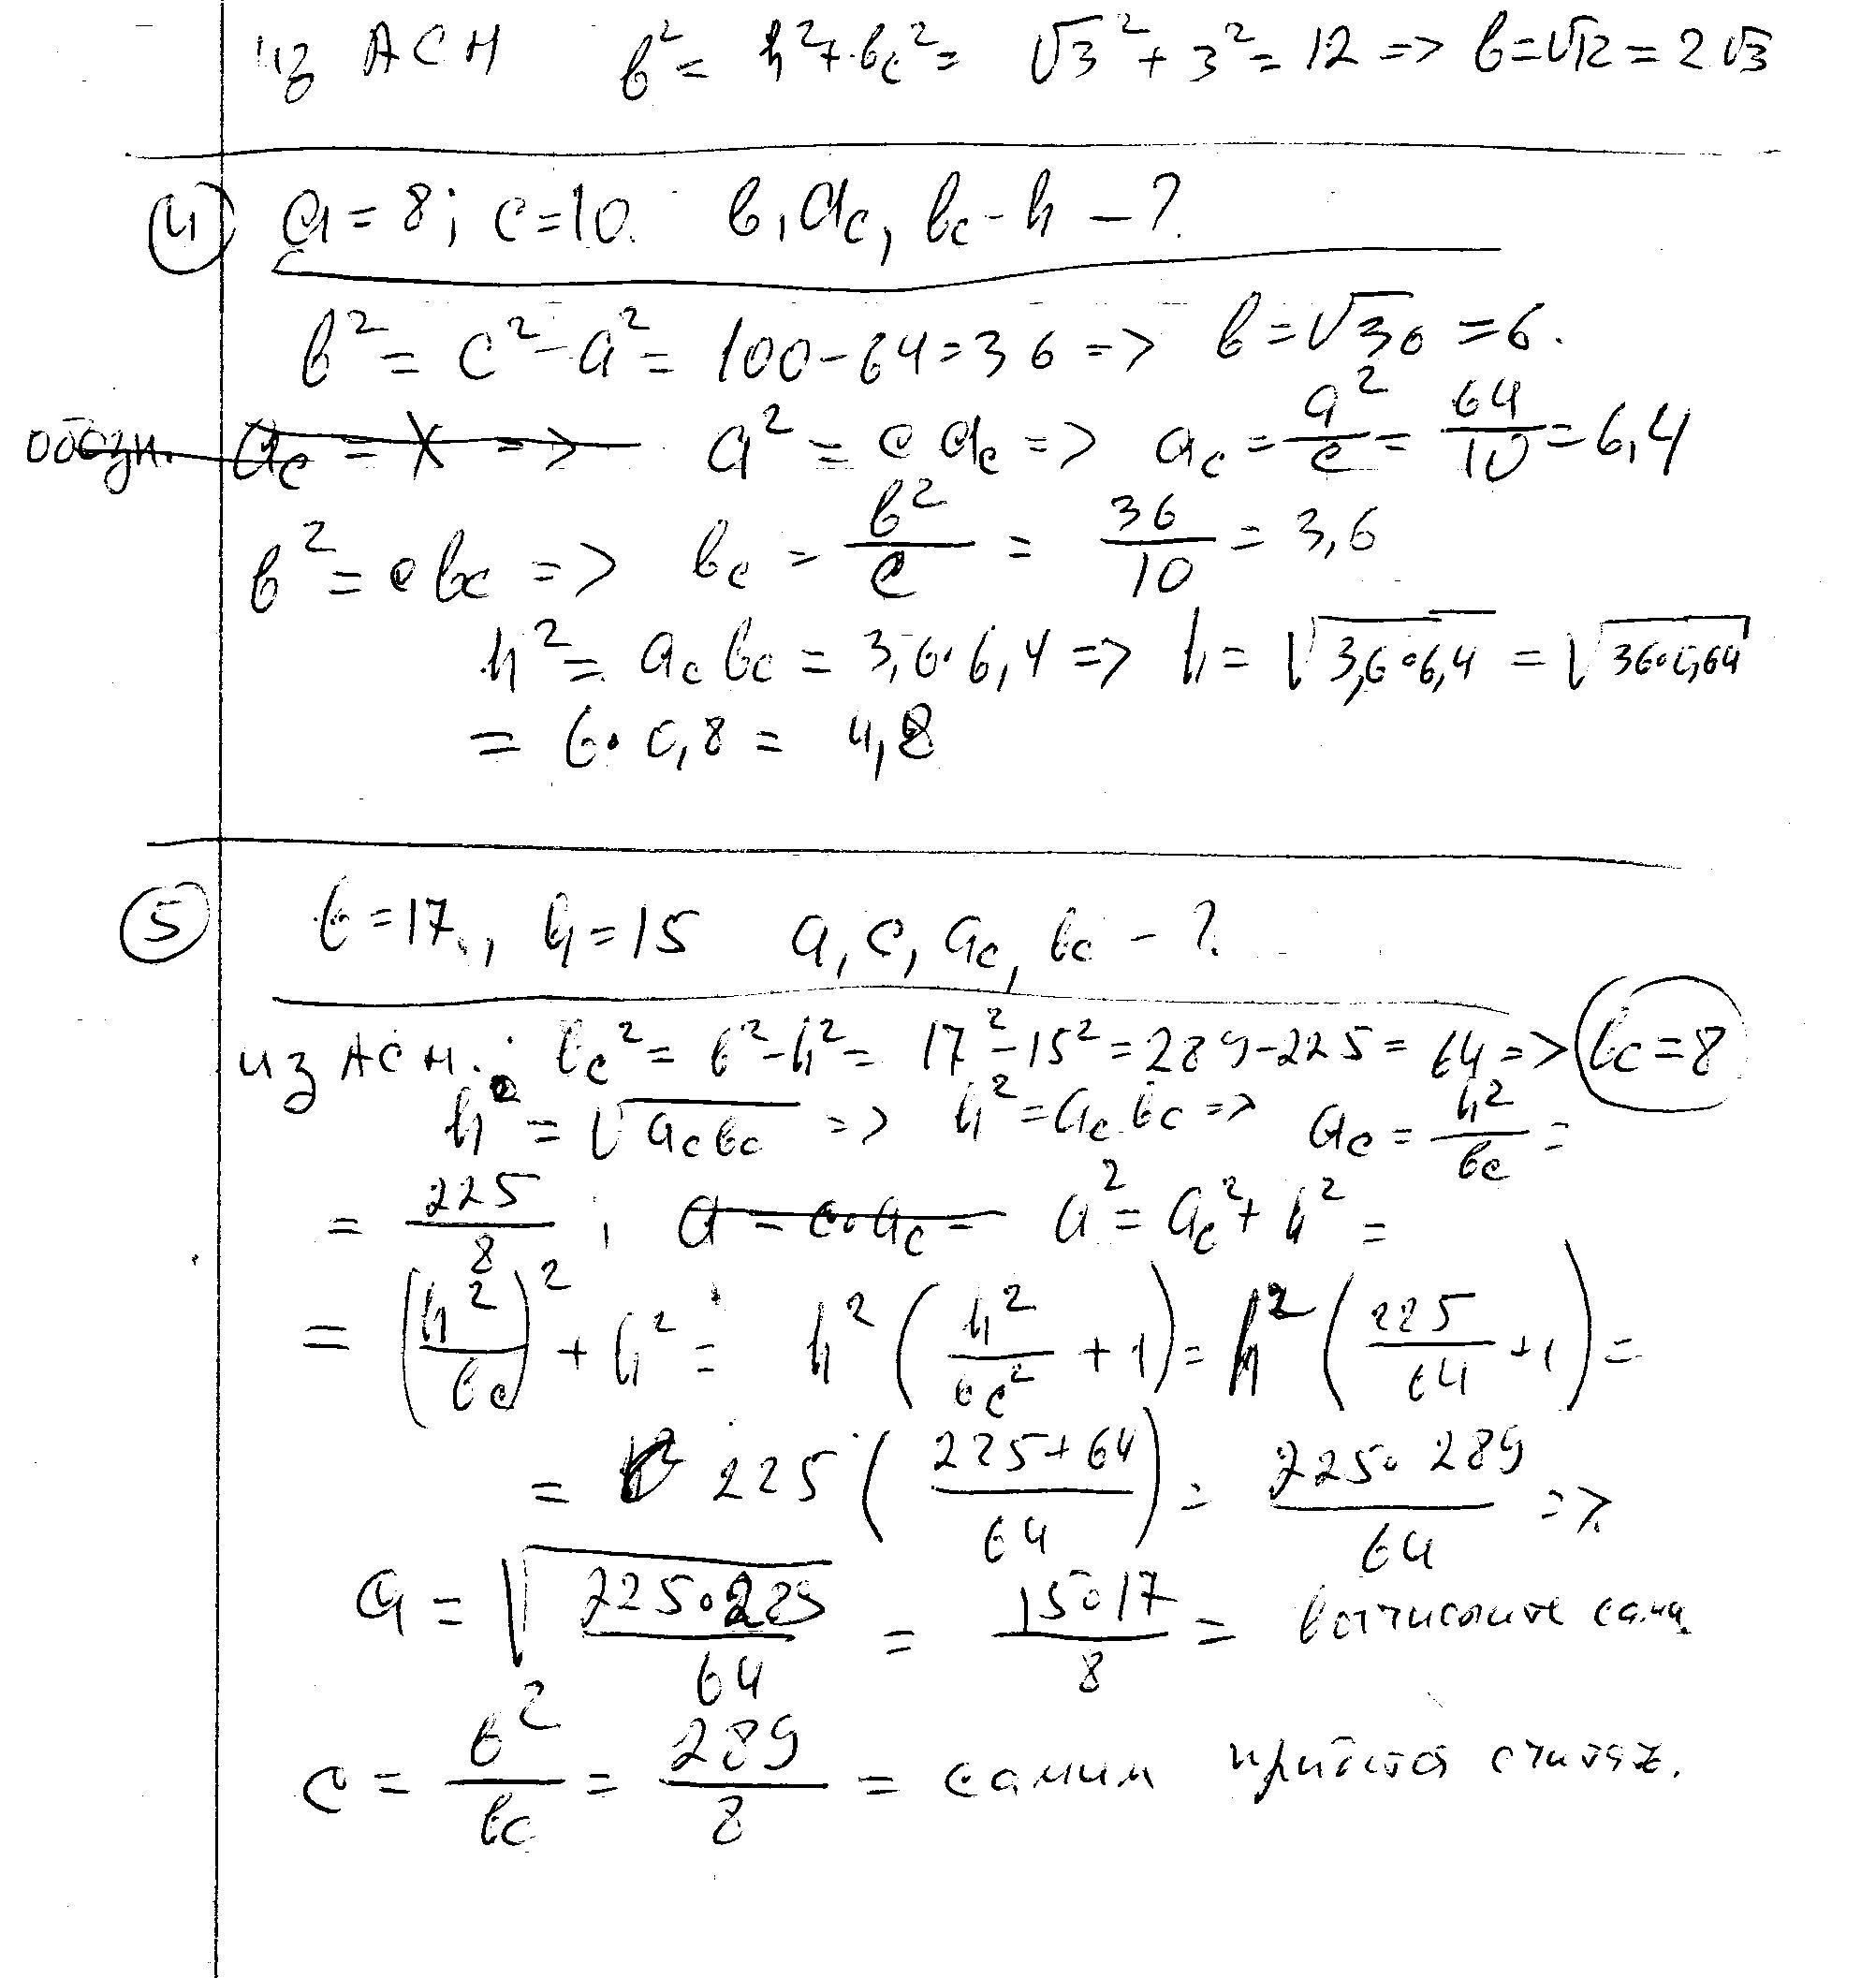 из ACH b² = h² + bc² = √3² + 3² = 12 => b = √12 = 2√3
④ a = 8; c = 10. b, ac, bc - h - ?
b² = c² - a² = 100 - 64 = 36 => b = √36 = 6.
обозн. ac = x => a² = c ac => ac = a²/c = 64/10 = 6,4
b² = c bc => bc = b²/c = 36/10 = 3,6
h² = ac bc = 3,6·6,4 => h = √3,6·6,4 = √36·0,64
= 6·0,8 = 4,8
⑤ b = 17, h = 15 a, c, ac, bc - ?
из ACH: bc² = b² - h² = 17² - 15² = 289 - 225 = 64 => bc = 8
h = √ac bc => h² = ac bc => ac = h²/bc =
= 225/8 ; a = c·ac = a² = ac² + h² =
= (h²/bc)² + h² = h² (h²/bc² + 1) = h² (225/64 + 1) =
= h² 225 (225+64/64) = 225·289/64 =>
a = √225·289/64 = 15·17/8 = вычислите сами
c = b²/bc = 289/8 = самим считать.